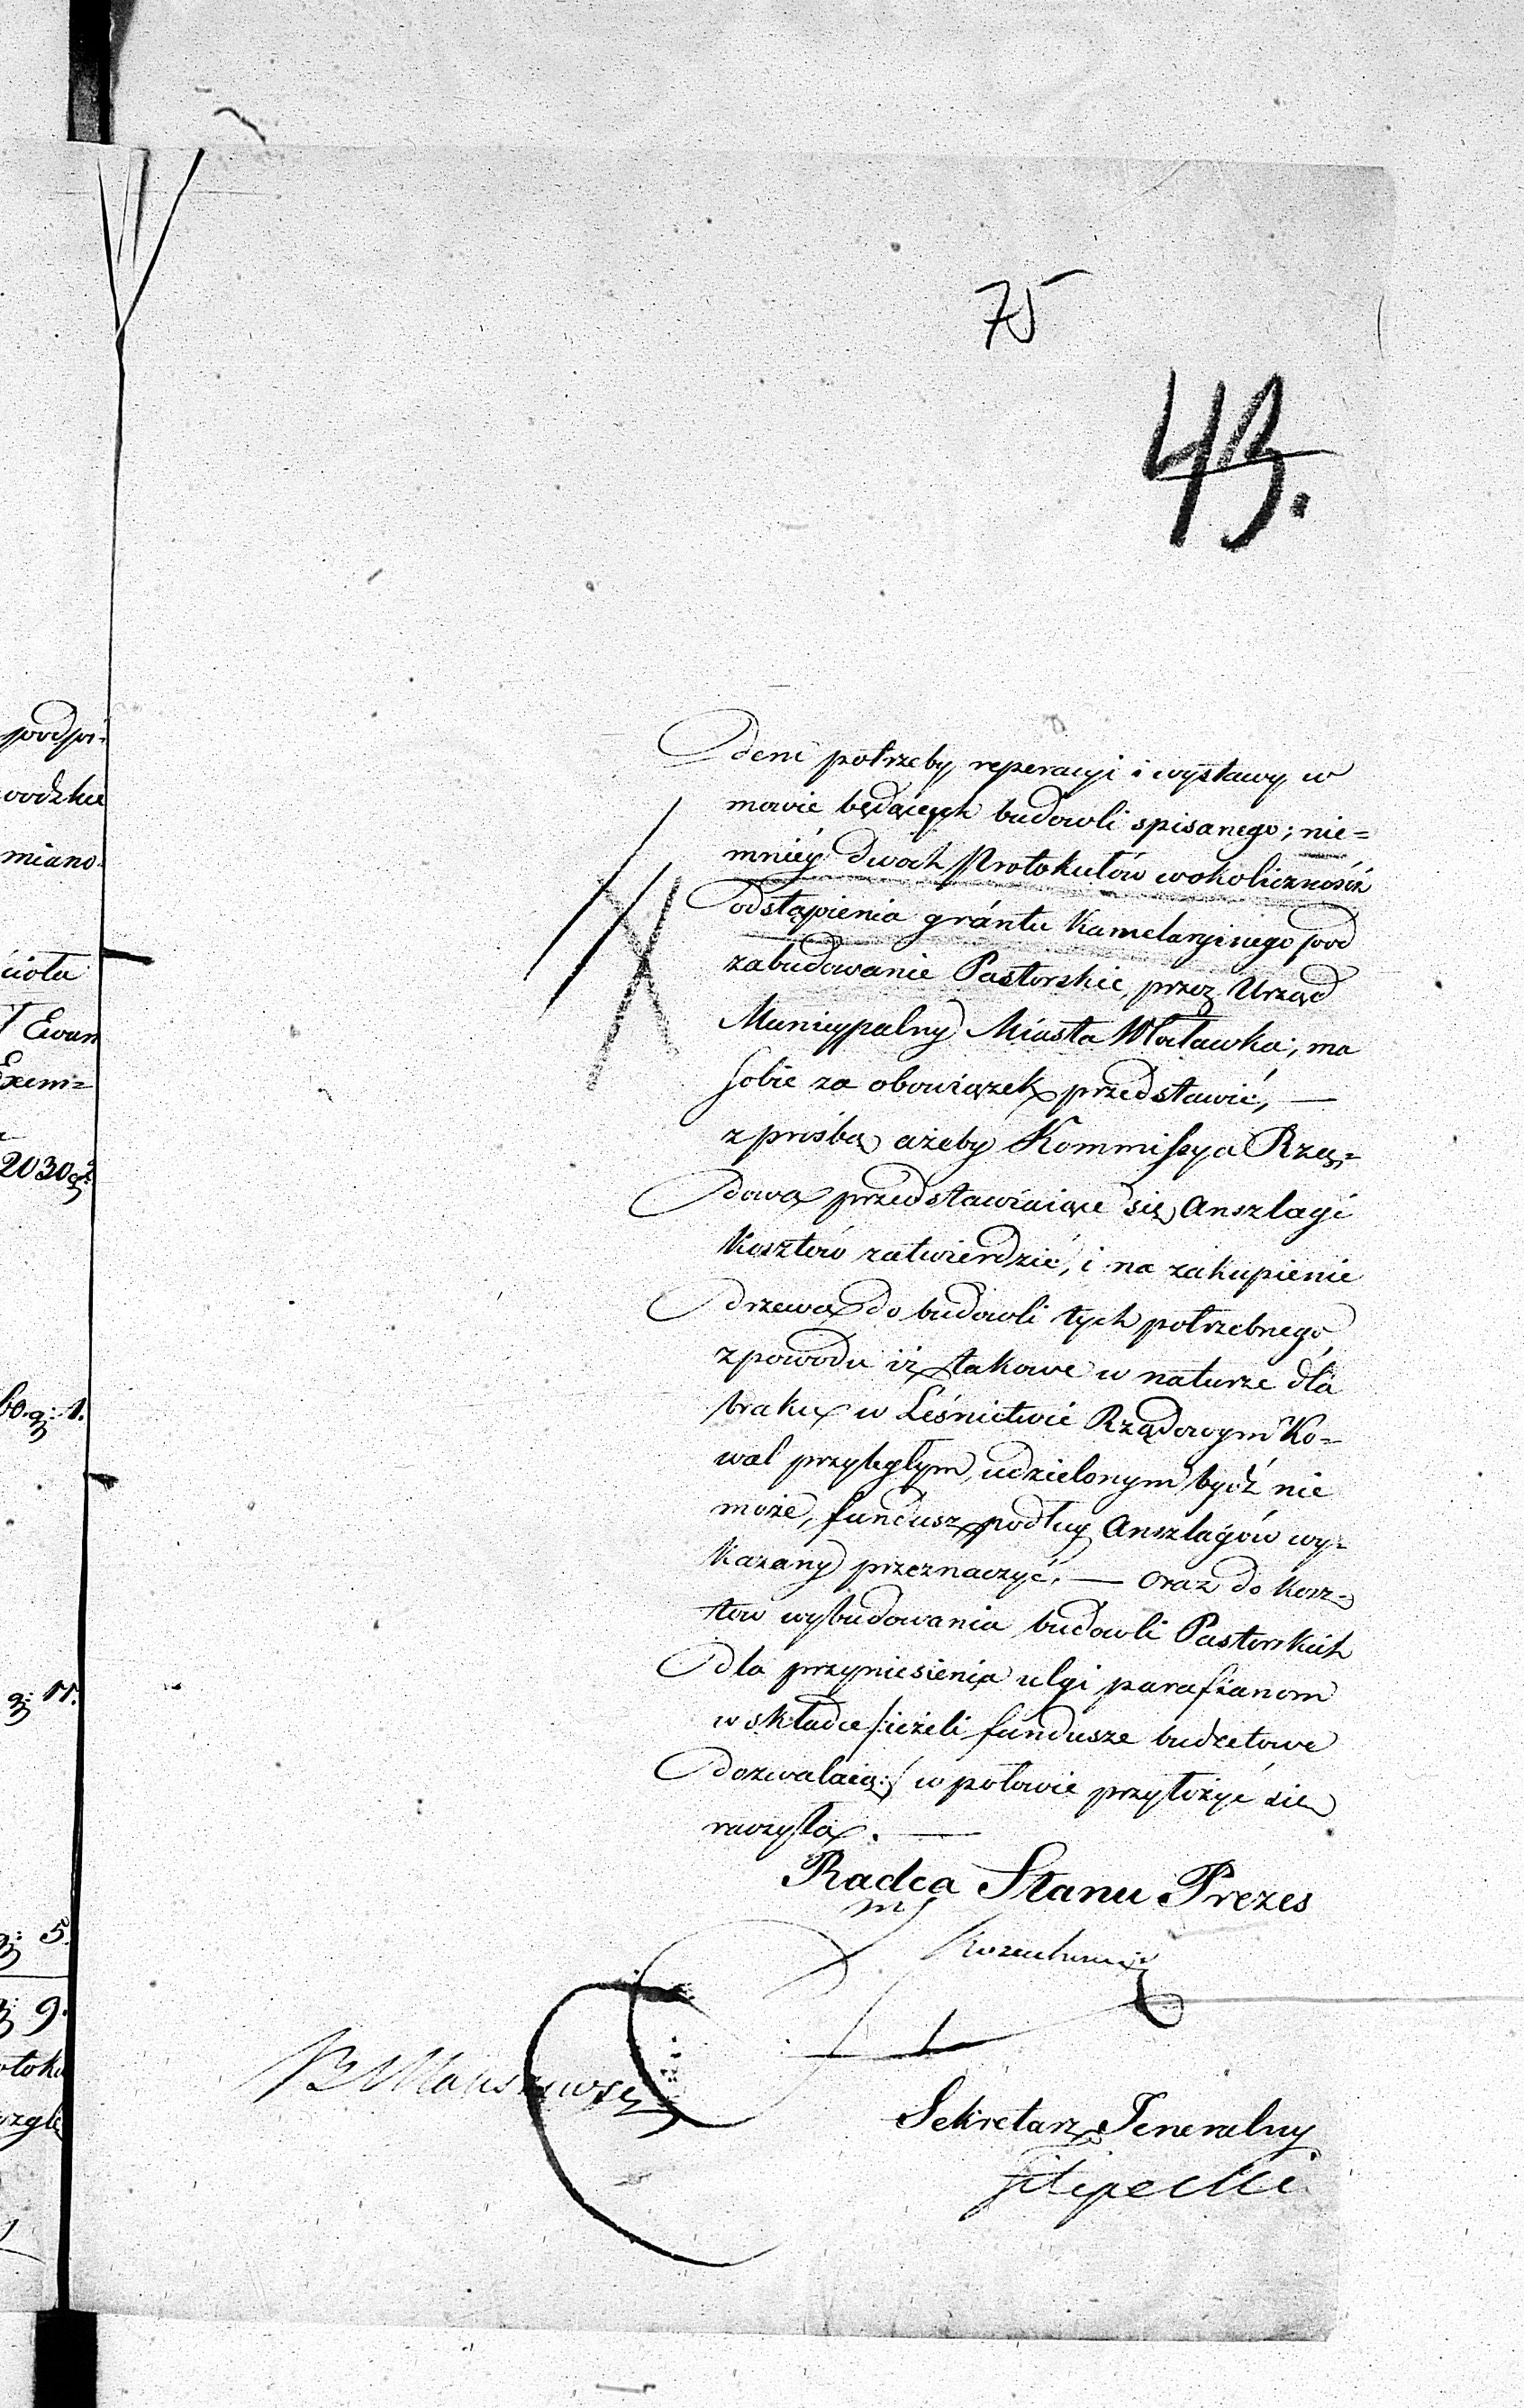 75
43.
podpi-
wodzkie
miano-
cioła
Ewan
Exem=
2030
g: 1.
g: 17.
5.
g: 9.
dem potrzeby reperacyi i wystawy w
mowie będących budowli spisanego; nie=
mniéy dwoch Protokułów wokoliczność
odstąpienia gruntu Kamelaryinego pod
zabudowanie Pastorskie, przez Urząd
Municypalny Miasta Włocławka; ma
sobie za obowiązek przedstawić, —
z prośbą ażeby Kommissya Rzą=
dowa przedstawiaiące się Anszlagi
Kosztów zatwierdzić, i na zakupienie
drzewa do budowli tych potrzebnego,
z powodu iż takowe w naturze dla
braku w Leśnictwie Rządowym Ko=
wal przyległym, udzielonym bydź nie
może, fundusz podług Anszlagów wy=
kazany przeznaczyć. — oraz do kosz=
tów wybudowania budowli Pastorskich
dla przyniesienia ulgi parafianom
w składce /: ieżeli fundusze budżetowe
dozwalaią :/ w połowie przyłożyć się
raczyła. —
Radca Stanu Prezes
Sekretarz Jeneralny
Filipecki